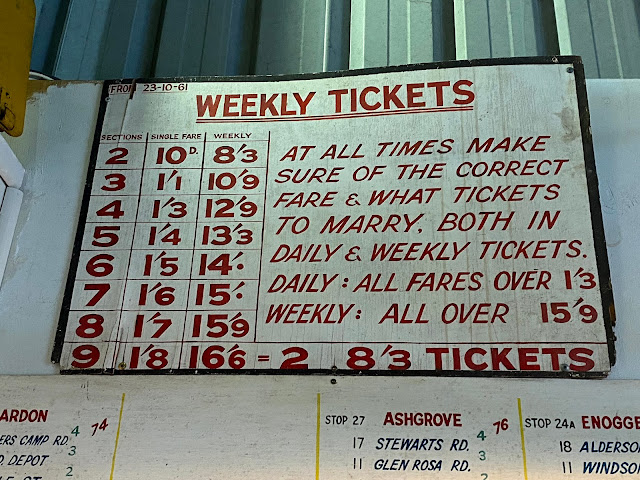 FROM 23-10-61
WEEKLY TICKETS
SECTIONS SINGLE FARE WEEKLY
2 10D. 8'3
3 1'1 10'9
4 1'3 12'9
5 1'4 13'3
6 1'5 14'-
7 1'6 15'-
8 1'7 15'9
9 1'8 16'6 = 2 8'3 TICKETS
AT ALL TIMES MAKE
SURE OF THE CORRECT
FARE & WHAT TICKETS
TO MARRY, BOTH IN
DAILY & WEEKLY TICKETS.
DAILY: ALL FARES OVER 1'3
WEEKLY: ALL OVER 15'9
ARDON
ERS CAMP RD. 4 74
D. DEPOT 3
2
STOP 27 ASHGROVE 76
17 STEWARTS RD. 4
11 GLEN ROSA RD. 3
2
STOP 24A ENOGGE
18 ALDERSO
11 WINDSO